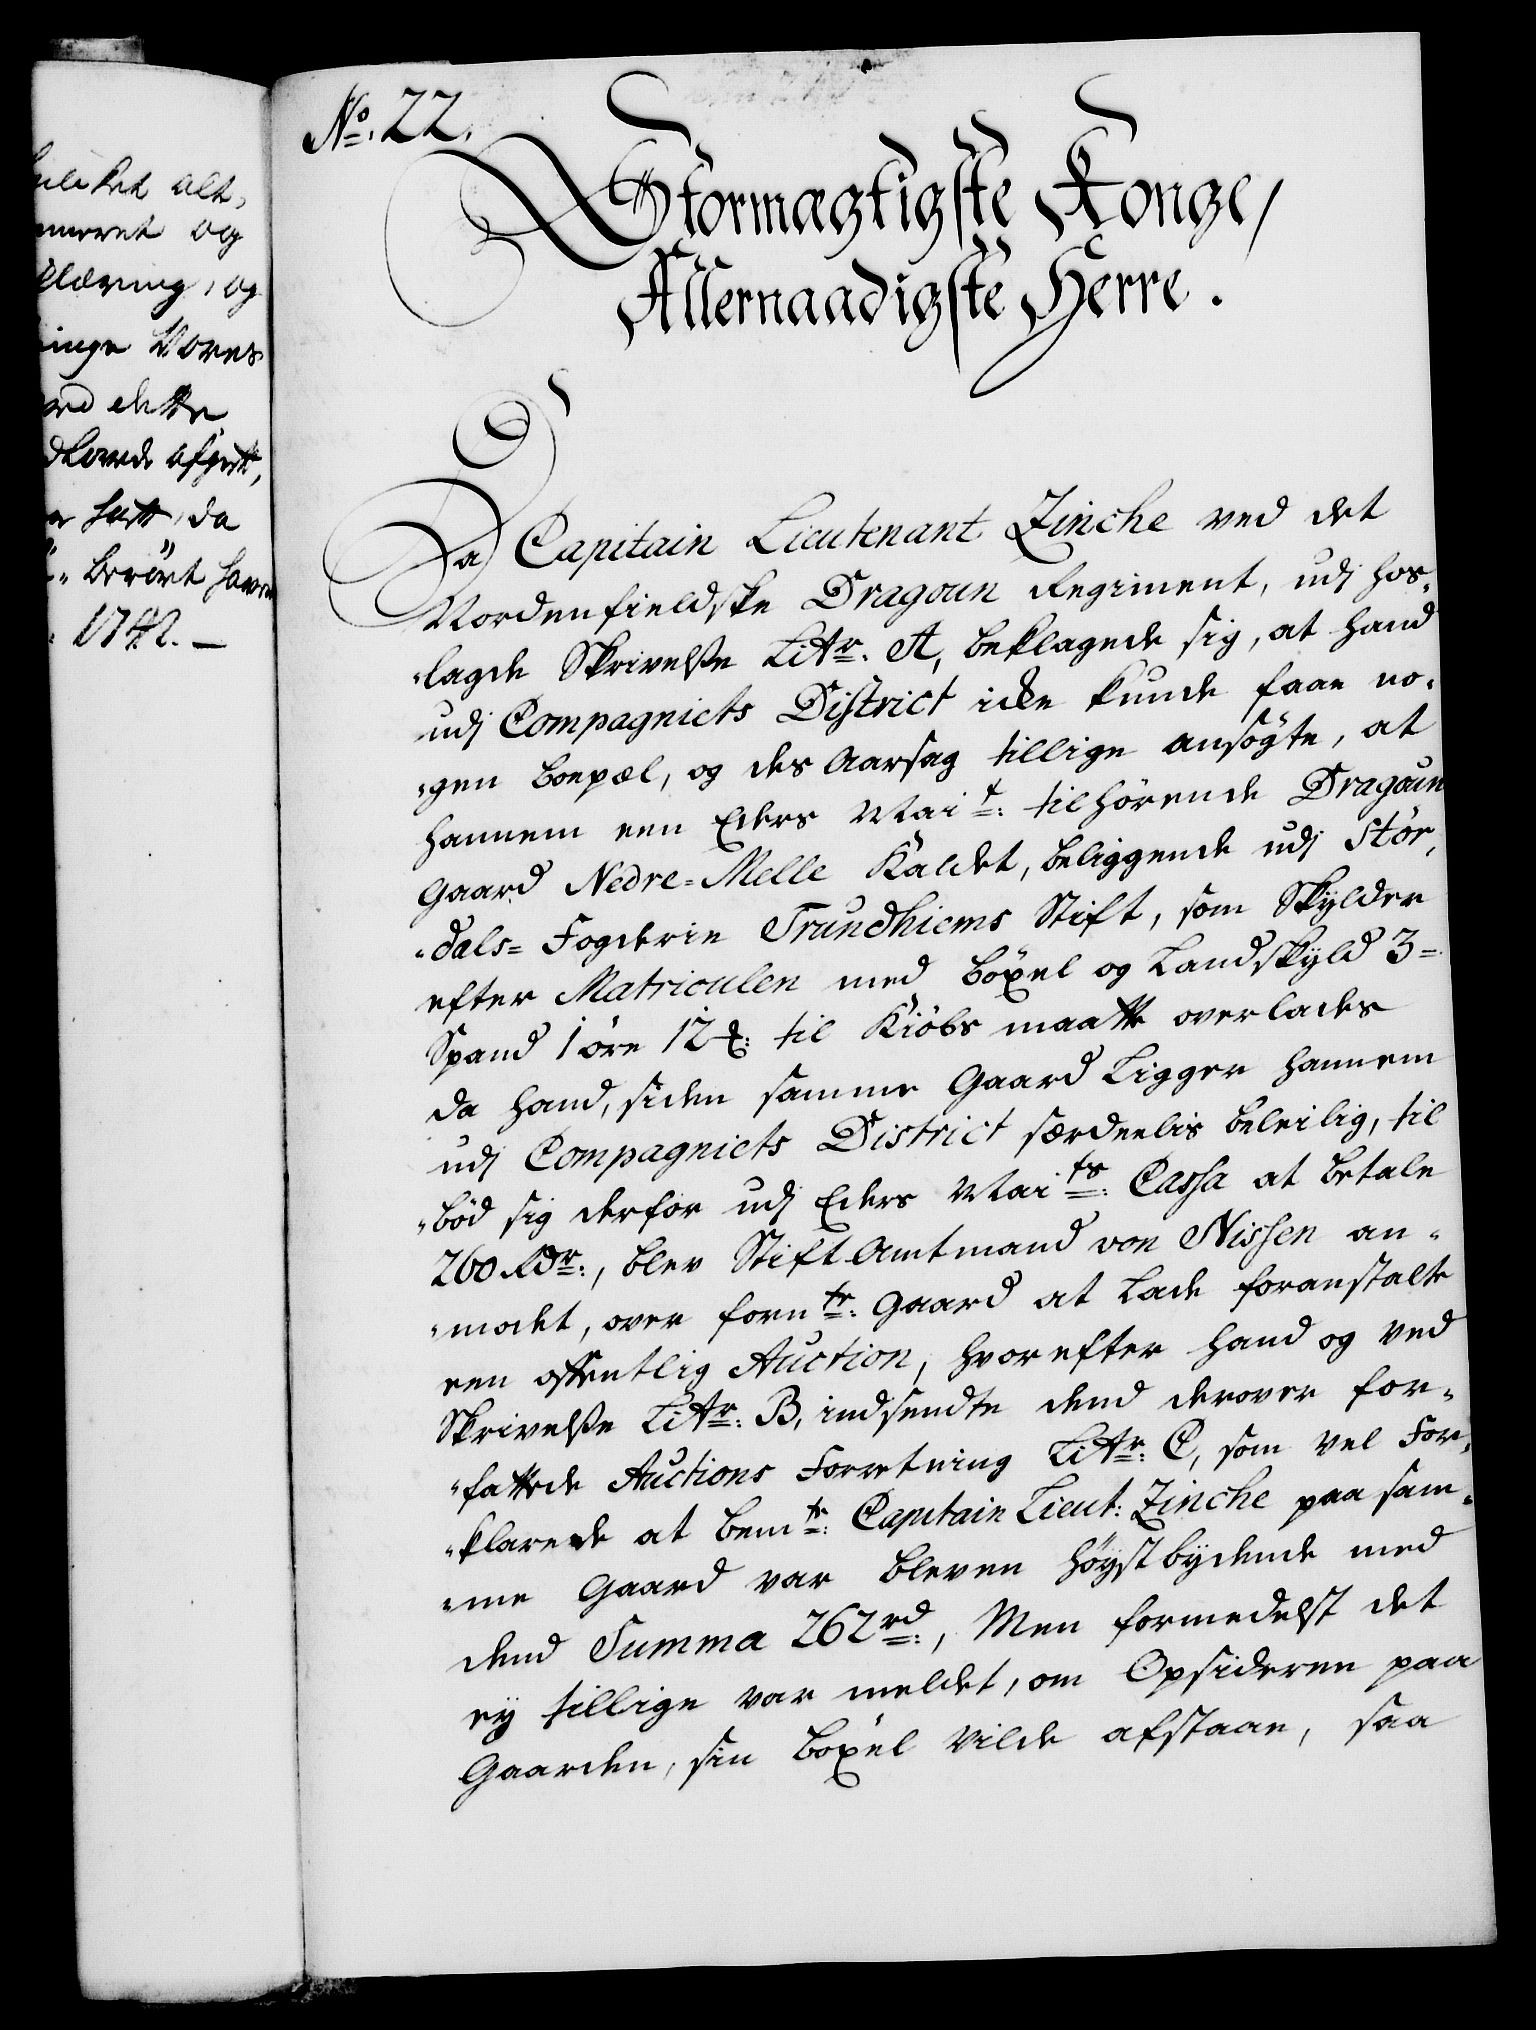 alt,
og
og
Vores
dette
da
berört
1742. —
No. 22.
Stormægtigste Konge,
Allernaadigste Herre.
Da Capitain Lieutenant Zinche ved det
Nordenfieldske Dragoun Regiment, udj hos-
-lagde Skrivelße Littr. A, beklagede sig, at hand
udj Compagniets District icke kunde faae no-
-gen boepæl, og des Aarsag tillige ansögte, at
hannem een Eders Mai.t tilhörende Dragoun
Gaard Nedre-Melle kaldet, beliggende udj Stör-
-dals-Fogderie Trundhiems Stift, som Skylder
efter Matriculen med böxel og Landskyld 3-
Spand 1 öre 12 til Kiöbs maatte overlades
da hand, siden samme Gaard Ligger hannem
udj Compagniets District særdeelis beleilig, til
-böd sig derfor udj Eders Mai.ts Cassa at betale
260 Rdr., blev Stift Amtmand von Nissen an-
-modet, over forn.te Gaard at Lade foranstalte
een offentlig Auction, hvorefter hand og ved
Skrivelße Littr. B, indsendte dend derover for-
-fattede Auctions Forretning Littr. C, som vel For-
-klarede at bem.te Capitain Lieut: Zinche paa sam-
-me Gaard var bleven höystbydende med
dend Summa 262 rd., Men formedelst det
ey tillige var meldet, om Opsideren paa
Gaarden, sin böxel vilde afstaae, saa